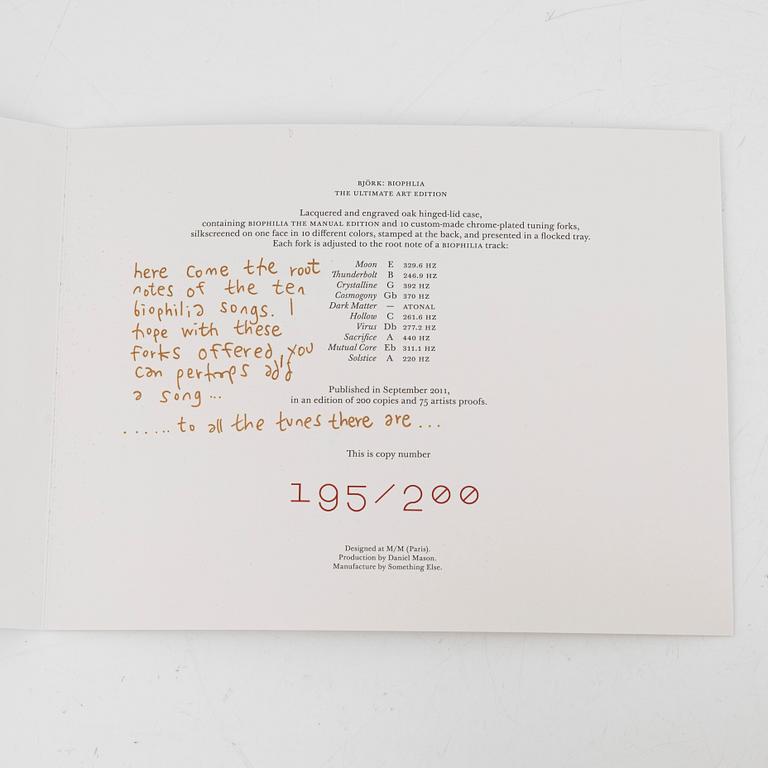 BJÖRK: BIOPHLIA
THE ULTIMATE ART EDITION
Lacquered and engraved oak hinged-lid case,
containing BIOPHILIA THE MANUAL EDITION and 10 custom-made chrome-plated tuning forks,
silkscreened on one face in 10 different colors, stamped at the back, and presented in a flocked tray.
Each fork is adjusted to the root note of a BIOPHILIA track:
here come the root
notes of the ten
biophilia songs. I
hope with these
forks offered, you
can perhaps add
a song...
......to all the tunes there are...
Moon E 329.6 HZ
Thunderbolt B 246.9 HZ
Crystalline G 392 HZ
Cosmogony Gb 370 HZ
Dark Matter — ATONAL
Hollow C 261.6 HZ
Virus Db 277.2 HZ
Sacrifice A 440 HZ
Mutual Core Eb 311.1 HZ
Solstice A 220 HZ
Published in September 2011,
in an edition of 200 copies and 75 artists proofs.
This is copy number
195/200
Designed at M/M (Paris).
Production by Daniel Mason.
Manufacture by Something Else.